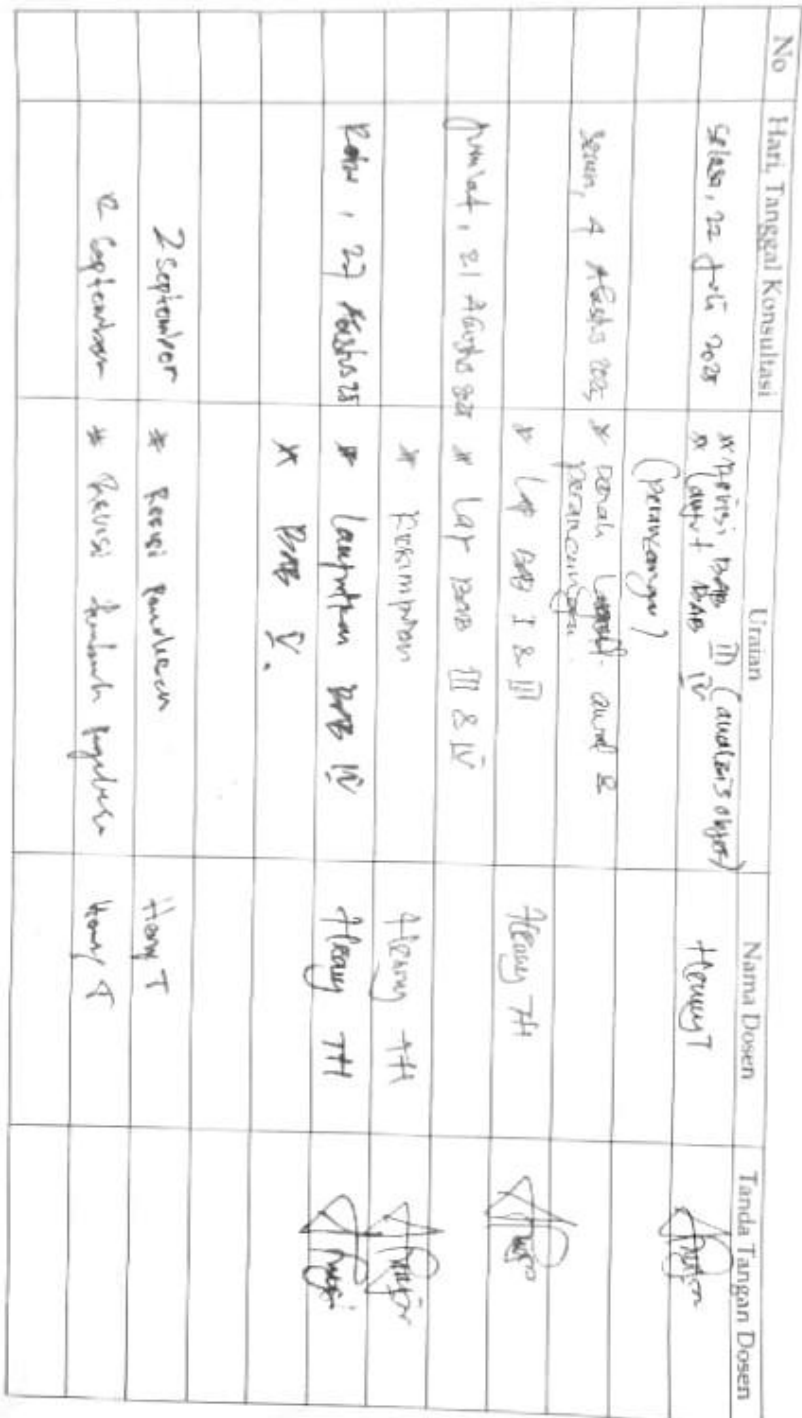 No Hari, Tanggal Konsultasi Uraian Nama Dosen Tanda Tangan Dosen
Selasa, 22 Juli 2025 * Revisi BAB III (analisis objek) Henny T
* Lanjut BAB IV
(perancangan)
Senin, 4 Agustus 2025, * awal &
perancangan
* Lap BAB I & III Henny TH
Jum'at, 21 Agustus 2025 * Lap BAB III & IV
* Kesimpulan Henny TH
Rabu, 27 Agustus 25 * Lanjutkan BAB IV Henny TH
* BAB V.
2 September * Revisi Penulisan Henny T
2 September * Revisi Henny T